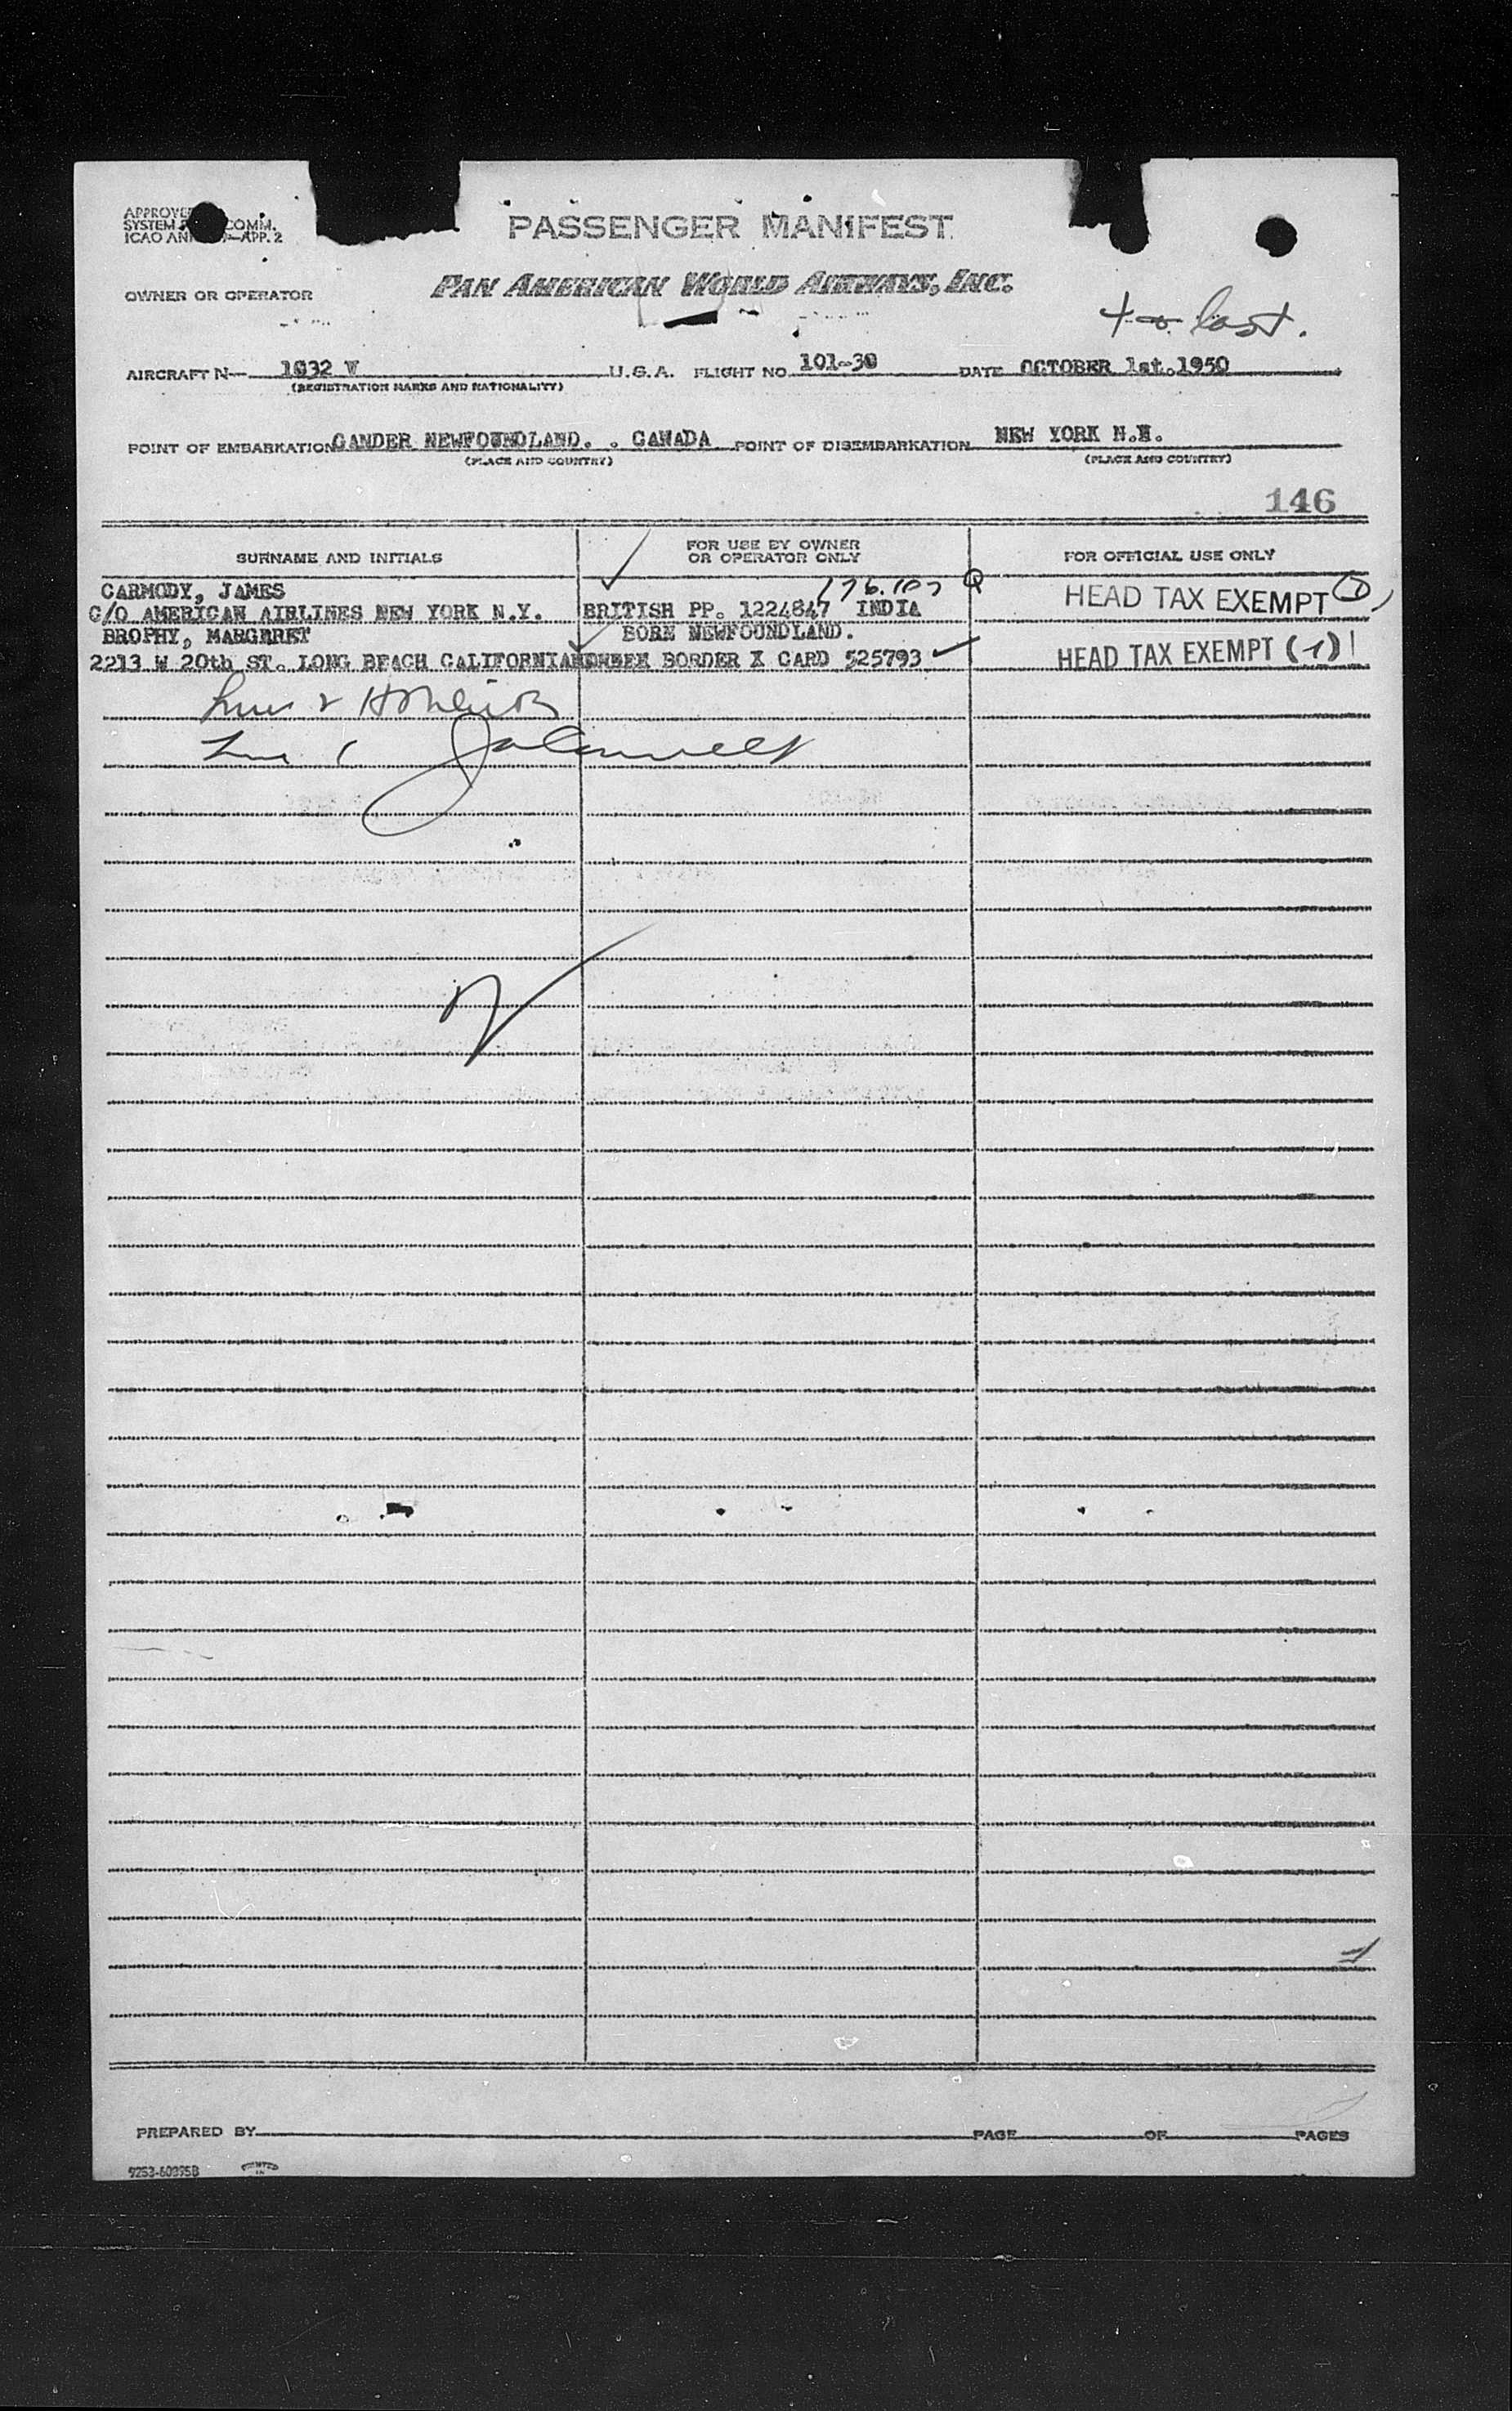 PASSENGER MANIFEST
SYSTEM COMM.
ICAO APP. 2
OWNER OR OPERATOR
PAN AMERICAN WORLD AIRWAYS, INC.
to last.
AIRCRAFT N— 1032 V U.S.A. FLIGHT NO. 101-30 DATE OCTOBER 1st.1950
(REGISTRATION MARKS AND NATIONALITY)
POINT OF EMBARKATION GANDER NEWFOUNDLAND. . CANADA POINT OF DISEMBARKATION NEW YORK
(PLACE AND COUNTRY) (PLACE AND COUNTRY)
146
SURNAME AND INITIALS
FOR USE BY OWNER
OR OPERATOR ONLY
FOR OFFICIAL USE ONLY
CARMODY, JAMES
C/O AMERICAN AIRLINES NEW YORK N.Y. BRITISH PP. 1224847 INDIA HEAD TAX EXEMPT
BROPHY, MARGARET BORN NEWFOUNDLAND.
2213 W 20th ST. LONG BEACH CALIFORNIA BORDER X CARD 525793 HEAD TAX EXEMPT (1)
PREPARED BY PAGE OF PAGES